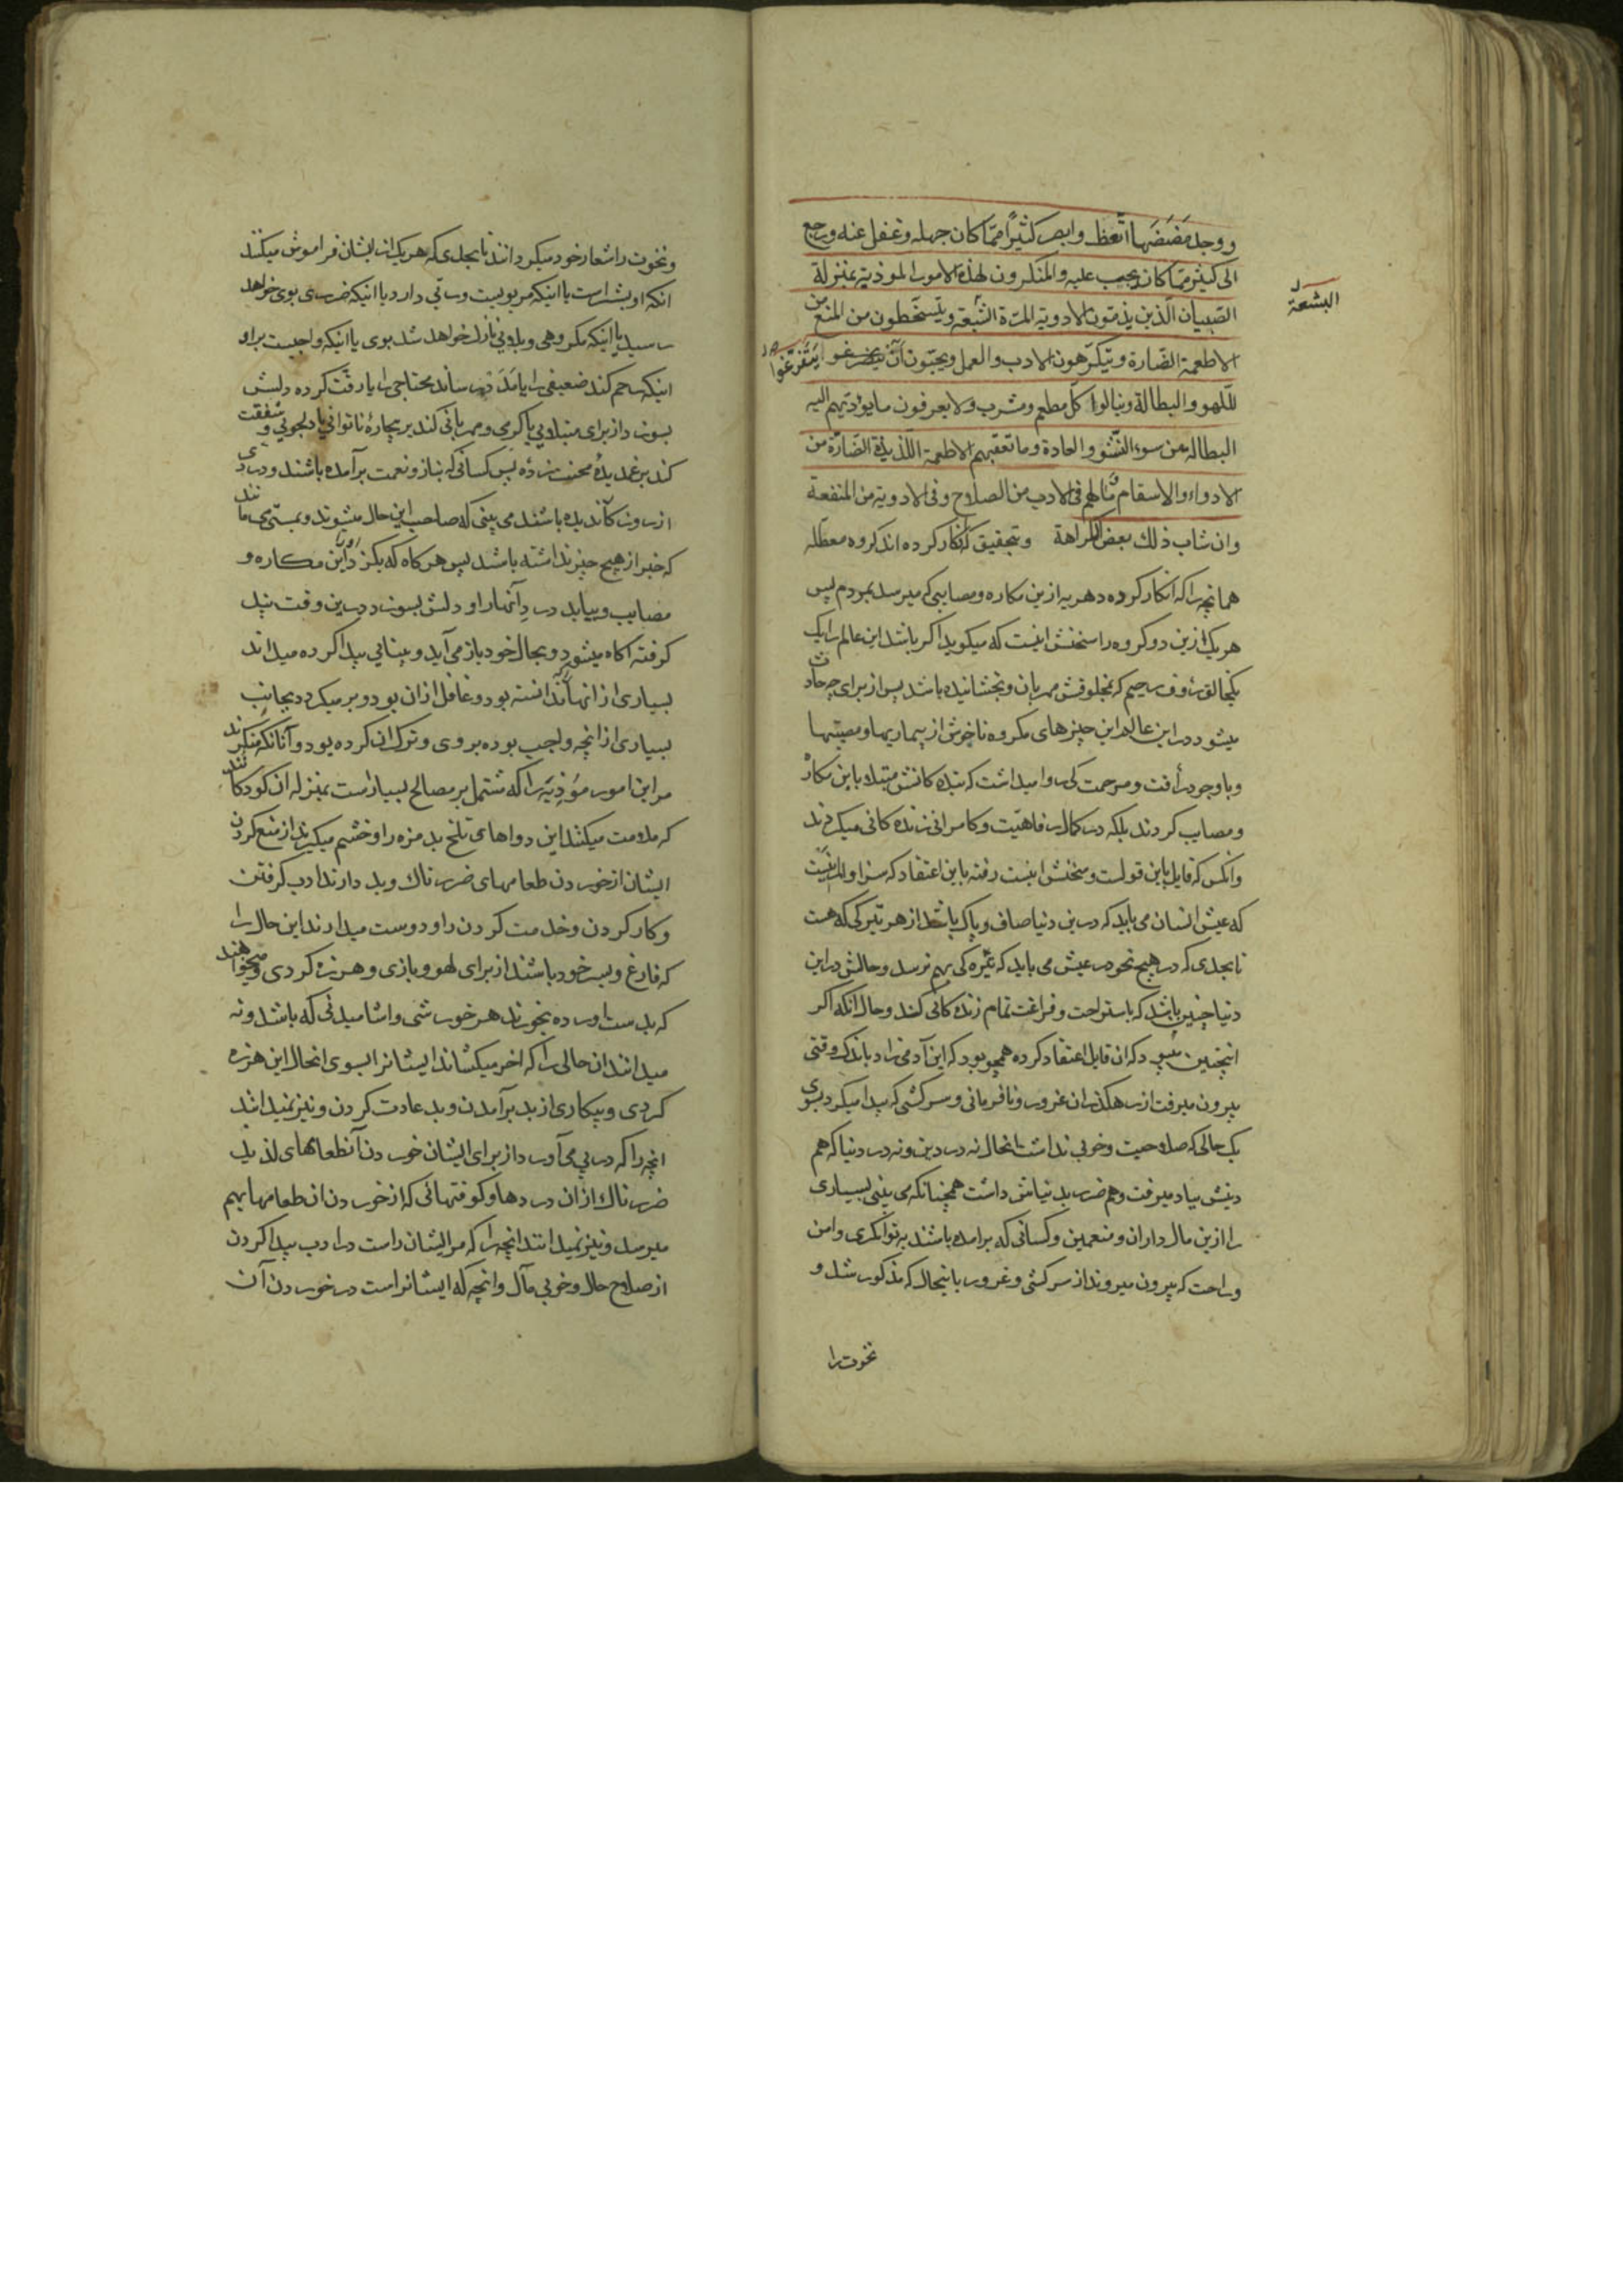 ووجد مَضَضَها اتّعظ وابصر كثيراً ممّا كان جهله وغفل عنه ورجع
الى كثير ممّا كان يجب عليه والمنكرون لهذه الامور الموذية بمنزلة
الصّبيان الّذين يذمّون الادوية المرّة الشّبعة ويتسخّطون من المنع من
البشعة
الاطعمة الضّارة ويتكرّهون الادب والعمل ويحبّون أنْ يتفرغوا يَتَفَرَّغُوا
للّهو والبطالة وينالوا كلّ مطعم ومشرب ولا يعرفون ما يؤدّيهم اليه
البطالة من سوء النّشو والعادة وما تعقبهم الاطعمة اللذيذة الضّارّة من
الادواء والاسقام وما لهم فى الادب من الصلاح وفى الادوية من المنفعة
وان شاب ذلك بعض الكراهة وبتحقيق كه انكار كرده اند كروه معطّله
همانچه را كه انكار كرده دهريه ازين مكاره ومصايبى كه ميرسد بمردم پس
هر يك ازين دو كروه را سخنش اينست كه ميكويد اكر باشد اين عالم را يك
يكخالق رؤف رحيم كه بمخلوقش مهربان وبخشاينده باشد پس از براى چه حادث
ميشود در اين عالم اين چيزهاى مكروه ناخوش از بيماريها ومصيبتها
وباوجود رأفت ومرحمت كى روا ميداشت كه بنده كانش مبتلا باين مكاره
ومصايب كردند بلكه در كمال رفاهيّت وكامرانى زنده كانى ميكردند
وانكس كه قايل باين قولست وسخنش اينست رفته باين اعتقاد كه سزاوار اينست
كه عيش انسان مى بايد كه درين دنيا صاف وپاك باشد از هر تيركى كه هست
تا بحدى كه در هيچ نحو در عيش مى بايد كه تيره كى بهم نرسد وحالش در اين
دنيا چنين باشد كه باستراحت وفراغت تمام زنده كانى كند وحال انكه اكر
اينچنين ميبود كه ان قايل اعتقاد كرده همچو بود كه اين آدمى زاد باندك وقتى
بيرون ميرفت از رهكذر ان غرور ونافرمانى وسركشى كه پيدا ميكرد بسوى
يك حالى كه صلاحيت وخوبى نداشت انحال نه در دين ونه در دنيا كه هم
دينش بباد ميرفت وهم ضرر بدنياش داشت همچنانكه مى بينى بسيارى
را ازين مال داران ومنعمين وكسانى كه برامده باشند به توانكرى وامن
وراحت كه بيرون ميروند از سركشى وغرور باينحال كه مذكور شد و
نخوت را
ونخوت را شعار خود ميكردانند تا بحدى كه هر يك از ايشان فراموش ميكنند
انكه او بشر است يا اينكه مربوبيست وربى دارد يا اينكه ضررى بوى خواهد
رسيد يا اينكه مكروهى وبلايى نازل خواهد شد بوى يا اينكه واجبست براو
اينكه رحم كند ضعيفى را يا مَدَد رساند محتاجى را يا رقّت كرده دلش
بسوزد از براى مبتلايى يا كرمى ومهربانى كند بر بيچارهٔ ناتوانى يا دلجويى وشفقت
كند بر غمديدهٔ محنت زده پس كسانى كه بناز ونعمت برآمده باشند ودردى
از روزكار نديده باشند مى بينى كه صاحب اين حال ميشوند وبمستى مى مانند
كه خبر از هيچ چيز نداشته باشد پس هركاه كه بكزد او را اين مكاره و
مصايب وبيابد درد آنها را و دلش بسوزد درين وقت پند
كرفته اكاه ميشود وبحال خود باز مى آيد وبينايى پيدا كرده ميداند
بسيارى از انها كه ندانسته بود وغافل ازان بود وبر ميكردد بجانب
بسيارى از انچه واجب بوده بروى وترك ان كرده بود وآنانكه منكرند
مر اين امور مؤذيَه را كه مشتمل بر مصالح بسيارست بمنزله ان كودكانند
كه ملامت ميكنند اين دواهاى تلخ بد مزه را وخشم ميكيرند از منع كردن
ايشان از خوردن طعامهاى ضررناك وبد دارند ادب كرفتن
وكار كردن وخدمت كردن را ودوست ميدارند اين حال را
كه فارغ وبسر خود باشند از براى لهو وبازى وهرزه كردى وميخواهند
كه بدست اورده بخورند هر خورشى واشاميدنى كه باشد ونه
ميدانند ان حالى را كه اخر ميكشاند ايشانرا بسوى انحال اين هرزه
كردى وبيكارى از بد برآمدن وبد عادت كردن ونيز نميدانند
انچه را كه در پى مى آورد از براى ايشان خوردن آنطعامهاى لذيذ
ضررناك از ان دردها وكوفتهائى كه از خوردن ان طعامها بهم
ميرسد ونيز نميدانند انچه را كه مر ايشان راست در ادب پيدا كردن
از صلاح حال وخوبى مآل وانچه كه ايشانراست در خوردن آن